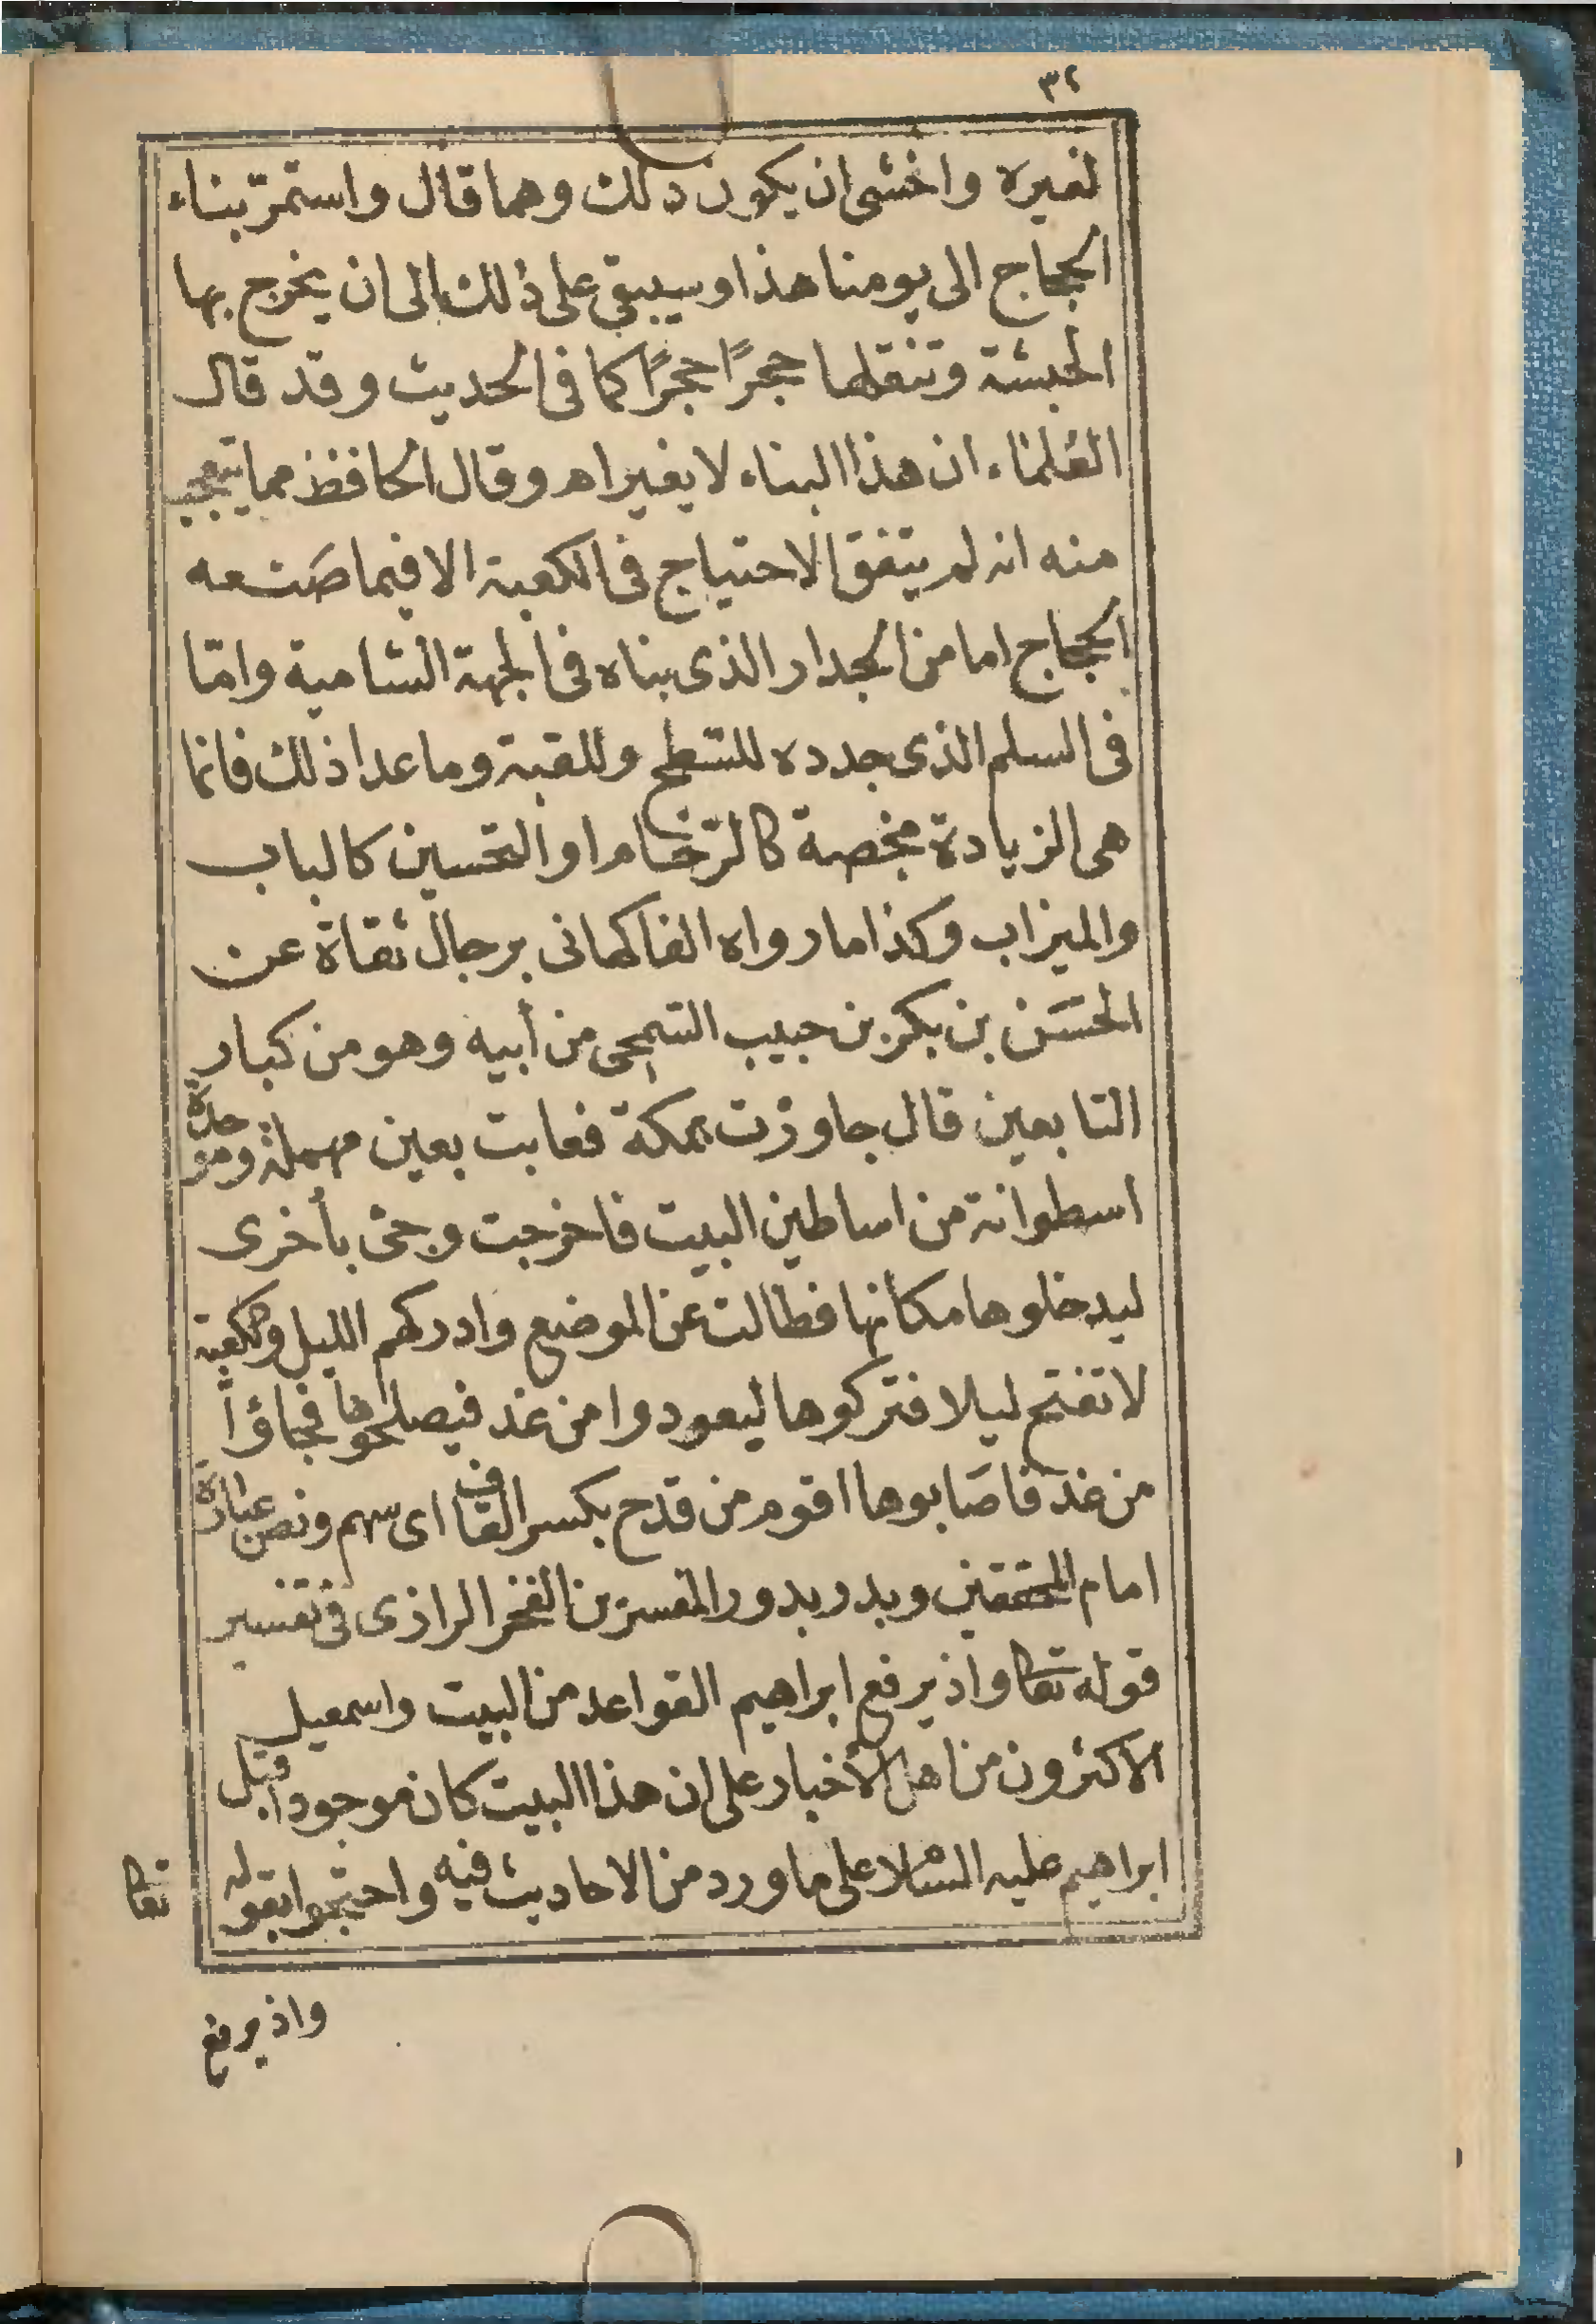 ٣٢
لغيره واخشى ان يكون ذلك وهما قال واستمرّ بناء
الحجاج الى يومنا هذا وسيبقى على ذلك الى ان يخرج بها
الحبشة وتنقلها حجرًا حجرًا كما فى الحديث وقد قال
العلماء ان هذا البناء لا يغير اهـ وقال الحافظ مما يتعجب
منه انه لم يتفق الاحتياج فى الكعبة الا فيما صَنعه
الحجاج اما من الجدار الذى بناه فى الجهة الشامية وامّا
فى السلم الذى جدده للسّطح وللقبة وما عدا ذلك فانما
هى الزيادة مخصة كالرّخام او التحسين كالباب
والميزاب وكذا ما رواه الفاكهانى برجال ثقاة عن
الحَسَن بن بكر بن حبيب السّمجى من أبيه وهو من كبار
التابعين قال جاوزت بمكة فعابت بعين مهملة وموحدة
اسطوانة من اساطين البيت فاخرجت وجئ بأخرى
ليدخلوها مكانها فطالت عن الموضع وادركهم الليل والكعبة
لا تفتح ليلا فتركوها ليعودوا من غد فيصلحوها فجاؤا
من غد فاصَابوها اقوم من قدح بكسر القاف اى سهم ونص عبارة
امام المحققين وبدر بدور المفسرين الفخر الرازى فى تفسير
قوله تعا واذ يرفع ابراهيم القواعد من البيت واسمعيل
الاكثرون من اهل الأخبار على ان هذا البيت كان موجودا قبل
ابراهيم عليه السّلام على ما ورد من الاحاديث فيه واحتجوا بقوله
تعا
واذ يرفع